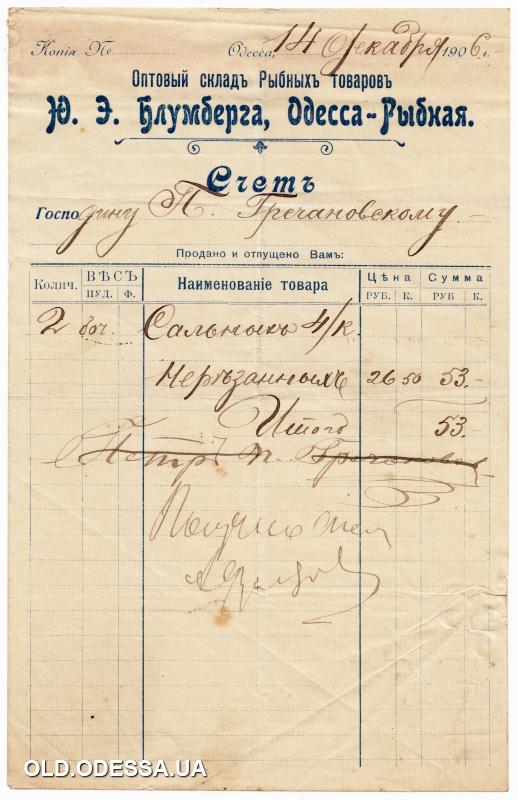 Копія № Одесса, 14 Декабря 1906 г.
Оптовый складъ Рыбныхъ товаровъ
Ю. Э. Блумберга, Одесса-Рыбная.
Счетъ
Господину П. Гречановскому
Продано и отпущено Вамъ:
Колич. ВѢСЪ ПУД. Ф. Наименованіе товара Цѣна РУБ. К. Сумма РУБ К.
2 боч. Сальныхъ 4/к.
Нерѣзанныхъ 26 50 53.-
Итого 53.-
Петръ П.
OLD.ODESSA.UA